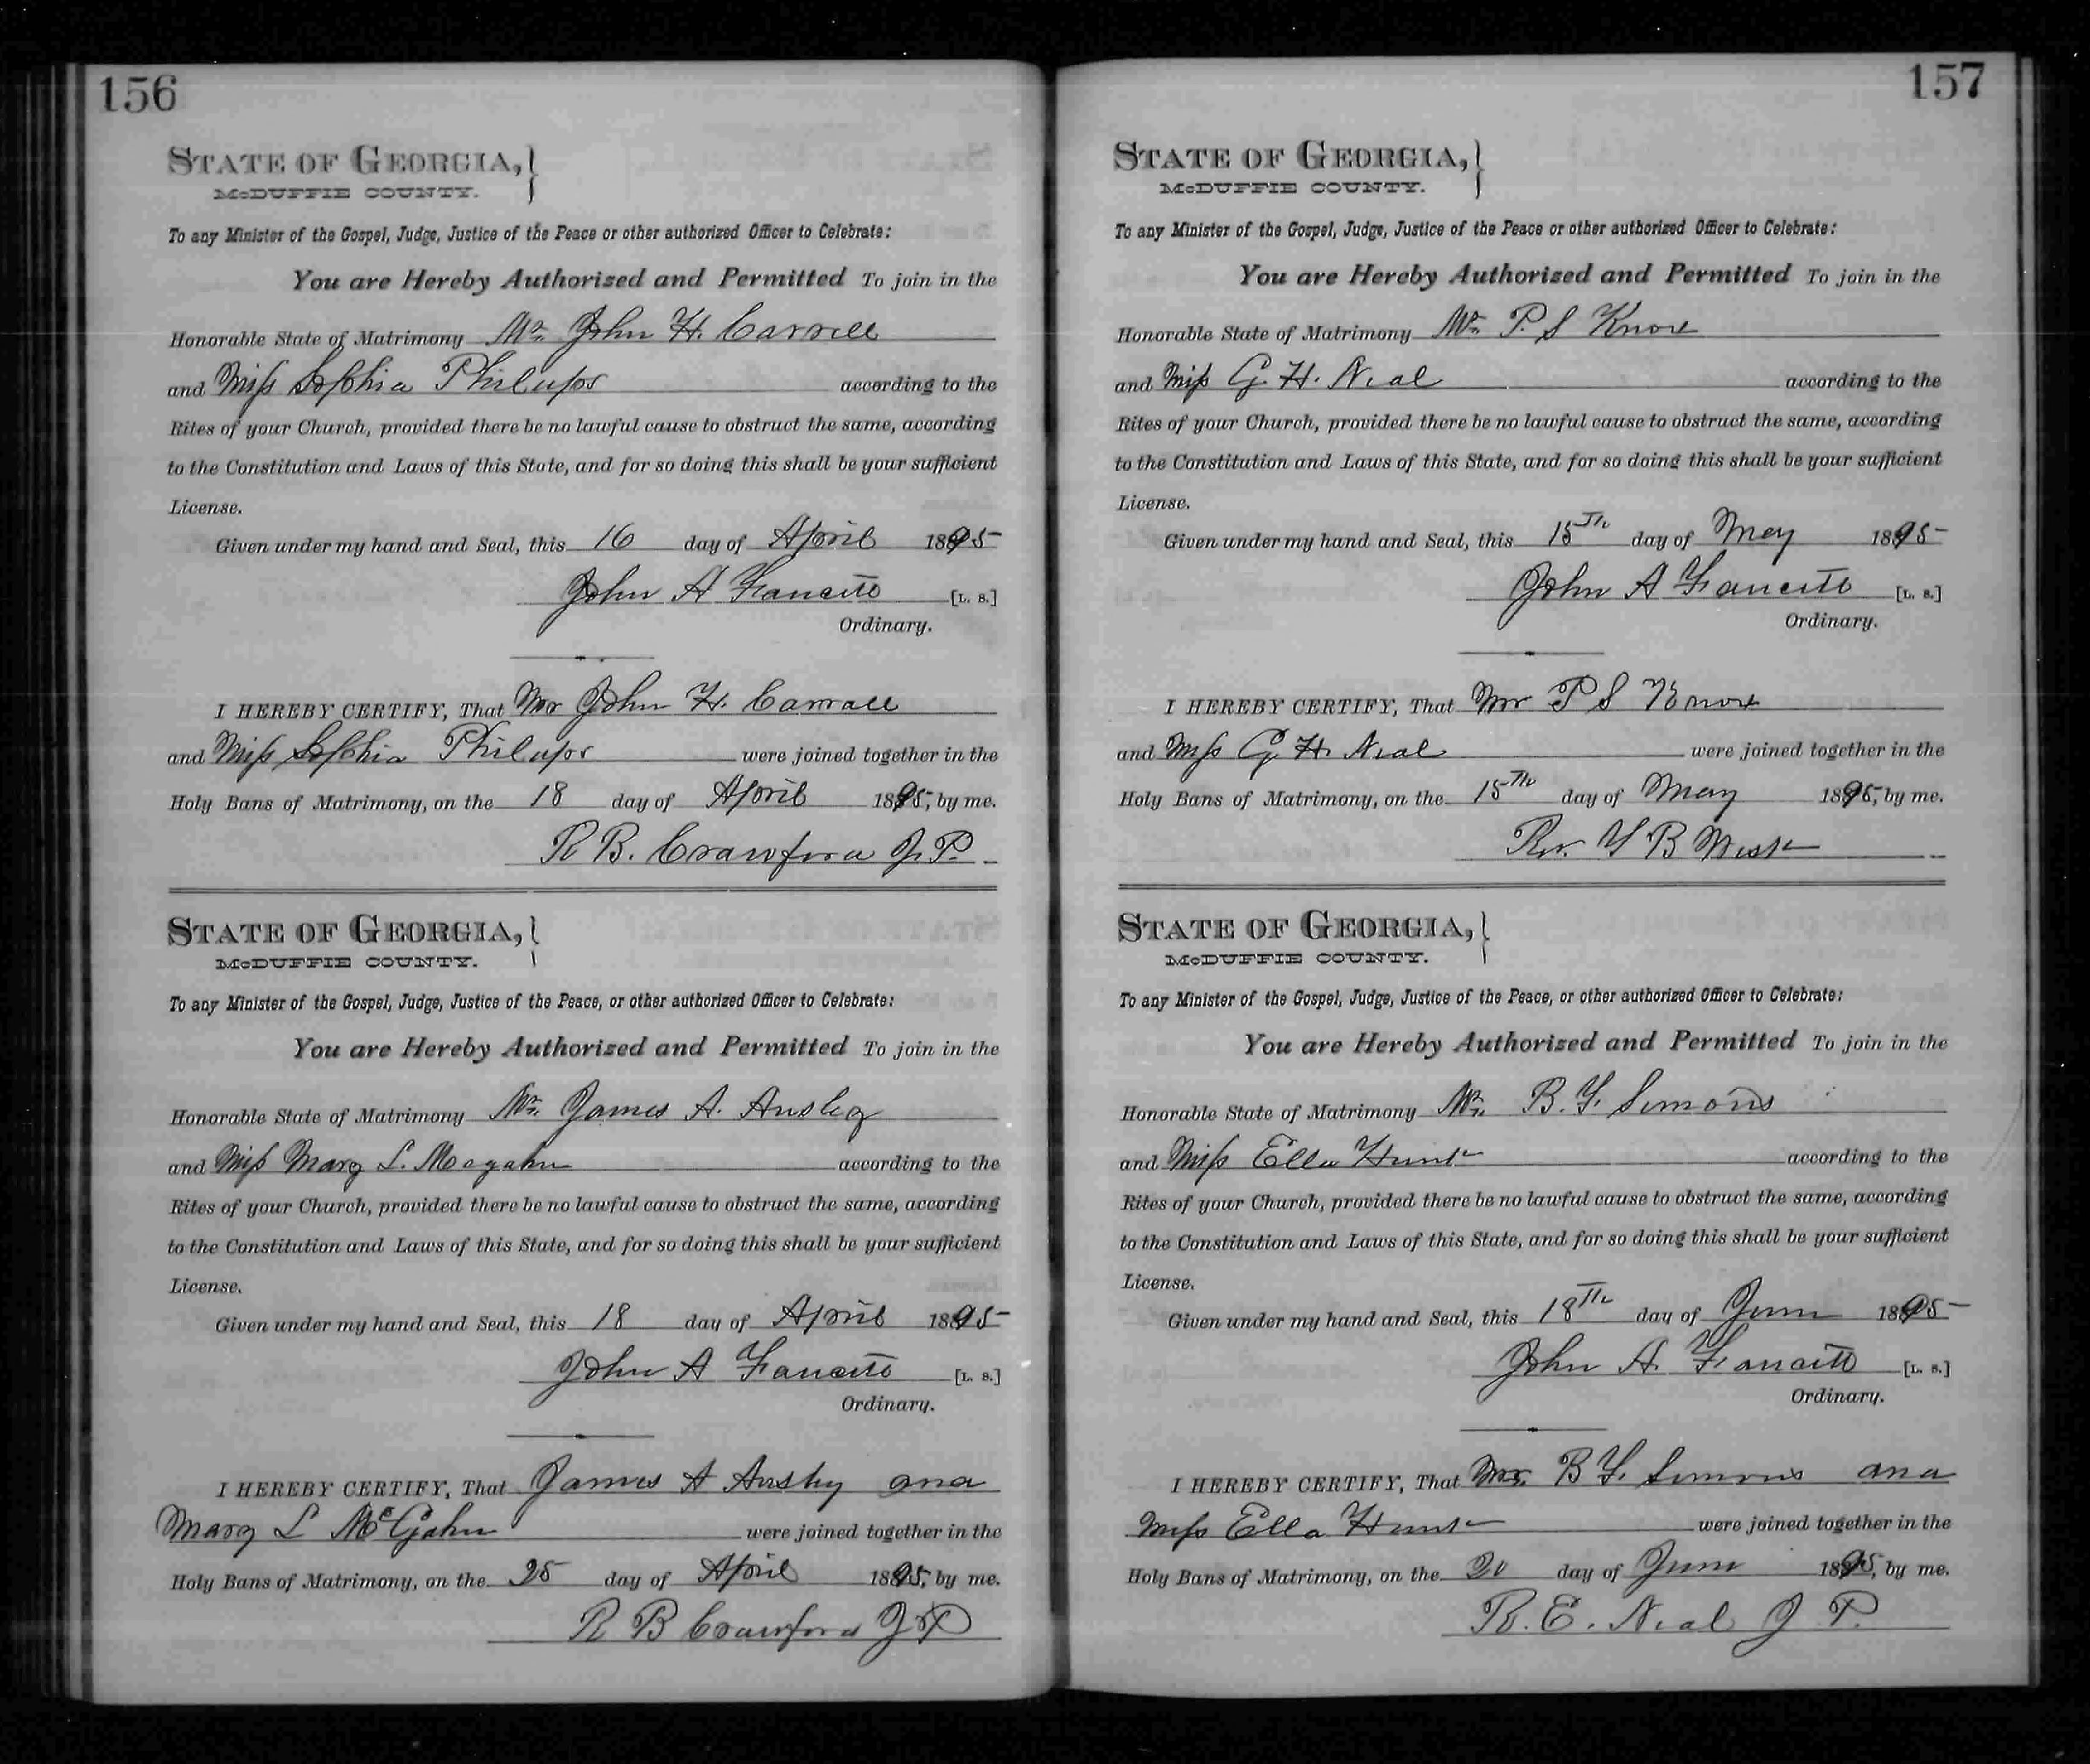 156
STATE OF GEORGIA,
McDUFFIE COUNTY.
To any Minister of the Gospel, Judge, Justice of the Peace or other authorized Officer to Celebrate:
You are Hereby Authorized and Permitted To join in the
Honorable State of Matrimony Mr. John H. Carrell
and Miss Sophia Philups according to the
Rites of your Church, provided there be no lawful cause to obstruct the same, according
to the Constitution and Laws of this State, and for so doing this shall be your sufficient
License.
Given under my hand and Seal, this 16 day of April 1895
John A [L. S.]
Ordinary.
I HEREBY CERTIFY, That Mr John H. Carrall
and Miss Sophia Philups were joined together in the
Holy Bans of Matrimony, on the 18 day of April 1895, by me.
R B. Crawford J. P.
STATE OF GEORGIA,
McDUFFIE COUNTY.
To any Minister of the Gospel, Judge, Justice of the Peace, or other authorized Officer to Celebrate:
You are Hereby Authorized and Permitted To join in the
Honorable State of Matrimony Mr. James A. Ansley
and Miss Mary L. Mcgahn according to the
Rites of your Church, provided there be no lawful cause to obstruct the same, according
to the Constitution and Laws of this State, and for so doing this shall be your sufficient
License.
Given under my hand and Seal, this 18 day of April 1895
John A [L. S.]
Ordinary.
I HEREBY CERTIFY, That James A Ansley and
Mary L McGahn were joined together in the
Holy Bans of Matrimony, on the 25 day of April 1895, by me.
R B Crawford J P
157
STATE OF GEORGIA,
McDUFFIE COUNTY.
To any Minister of the Gospel, Judge, Justice of the Peace or other authorized Officer to Celebrate:
You are Hereby Authorized and Permitted To join in the
Honorable State of Matrimony Mr. P. S Knox
and Miss G. H. Neal according to the
Rites of your Church, provided there be no lawful cause to obstruct the same, according
to the Constitution and Laws of this State, and for so doing this shall be your sufficient
License.
Given under my hand and Seal, this 15th day of May 1895
John A [L. S.]
Ordinary.
I HEREBY CERTIFY, That Mr P S Knox
and Miss G H. Neal were joined together in the
Holy Bans of Matrimony, on the 15th day of May 1895, by me.
Rev. B West
STATE OF GEORGIA,
McDUFFIE COUNTY.
To any Minister of the Gospel, Judge, Justice of the Peace, or other authorized Officer to Celebrate:
You are Hereby Authorized and Permitted To join in the
Honorable State of Matrimony Mr. B. F. Simons
and Miss Ella Hunt according to the
Rites of your Church, provided there be no lawful cause to obstruct the same, according
to the Constitution and Laws of this State, and for so doing this shall be your sufficient
License.
Given under my hand and Seal, this 18th day of June 1895
John A. [L. S.]
Ordinary.
I HEREBY CERTIFY, That Mr. B F. Simons and
Miss Ella Hunt were joined together in the
Holy Bans of Matrimony, on the 20 day of June 1895, by me.
R. E. Neal J P.